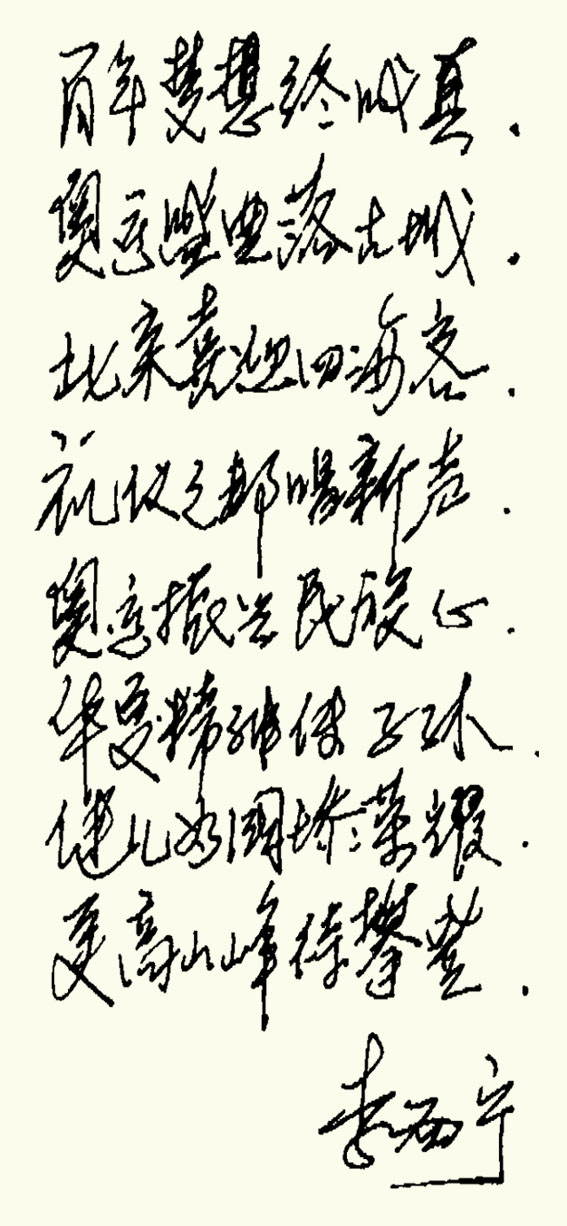 百年梦想终成真.
奥运盛典落古城.
北京喜迎四海客.
礼仪之邦唱新声.
奥运振兴民族心.
华夏精神传五环.
健儿为國增荣耀.
更高山峰待攀登.
李西宁